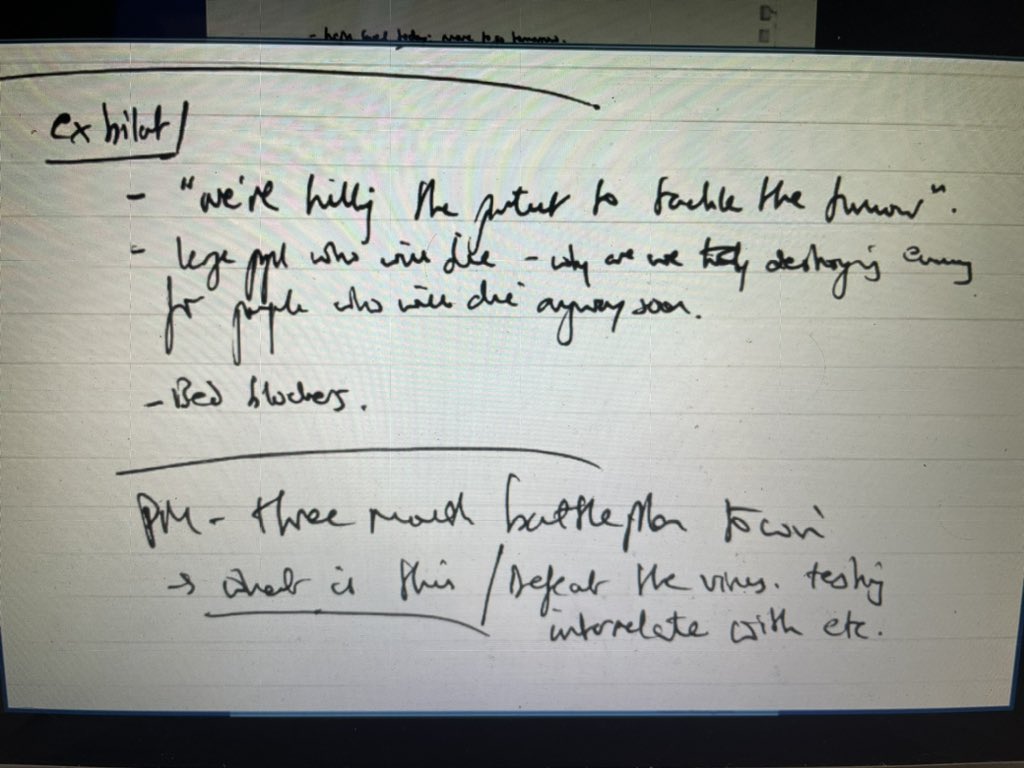 ex bilat
- "we're killing the patient to tackle the tumour".
- large ppl who will die - why are we destroying economy
for people who will die anyway soon.
- Bed blockers.
PM - three month battleplan to win
→ what is this / Defeat the virus. testing
interrelate with etc.